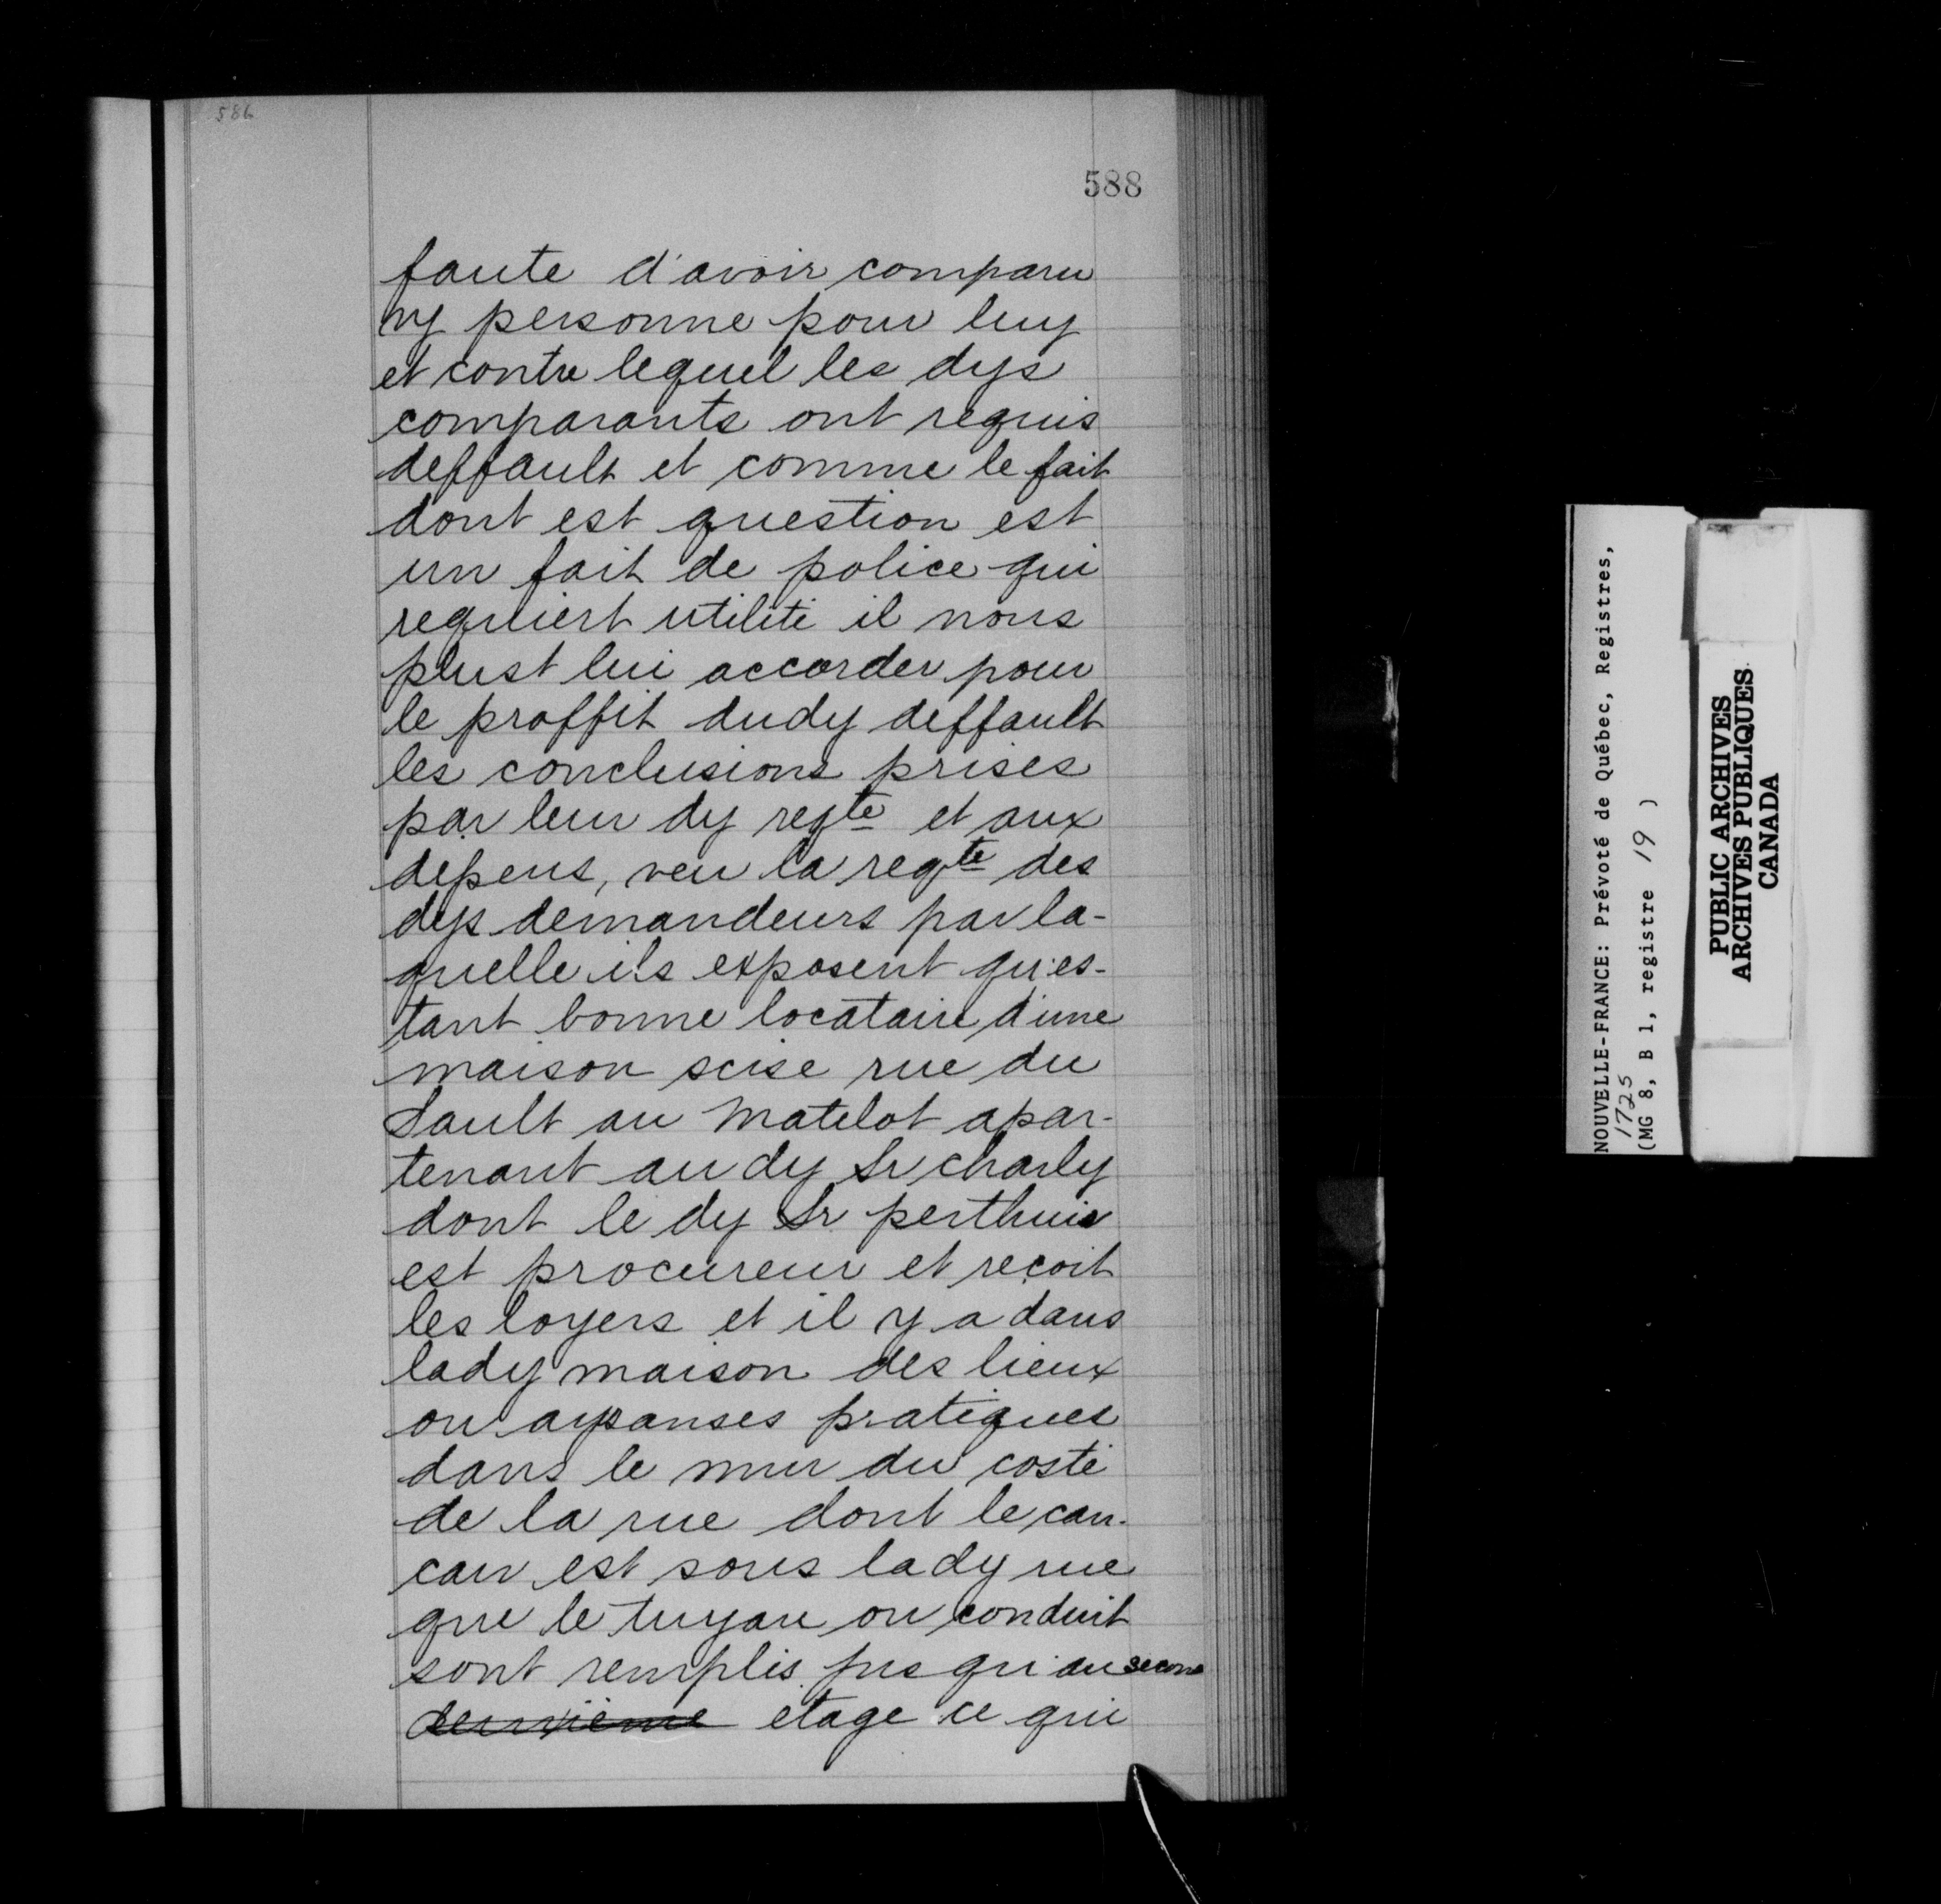 586
588
faute d'avoir comparu
ny personne pour luy
et contre lequel les dys
comparants ont requis
deffault et comme le fait
dont est question est
un fait de police qui
requiert utilité il nous
plust lui accorder pour
le proffit dudy deffault
les conclusions prises
par leur dy reqte et aux
depens, veu la reqte des
dys demandeurs par la-
quelle ils exposent qu'es-
tant bonne locataire d'une
maison scise rue du
Sault au Matelot apar-
tenant au dy Sr charly
dont le dy Sr perthuis
est procureur et reçoit
les loyers et il y a dans
lady maison des lieux
ou aysanses pratiques
dans le mur du costé
de la rue dont le cau-
cau est sous lady rue
que le tuyau ou conduit
sont remplis jusqu'au second
deuxième etage ce qui
NOUVELLE-FRANCE: Prévoté de Québec, Registres,
1725
(MG 8, B 1, registre 19 )
PUBLIC ARCHIVES
ARCHIVES PUBLIQUES
CANADA